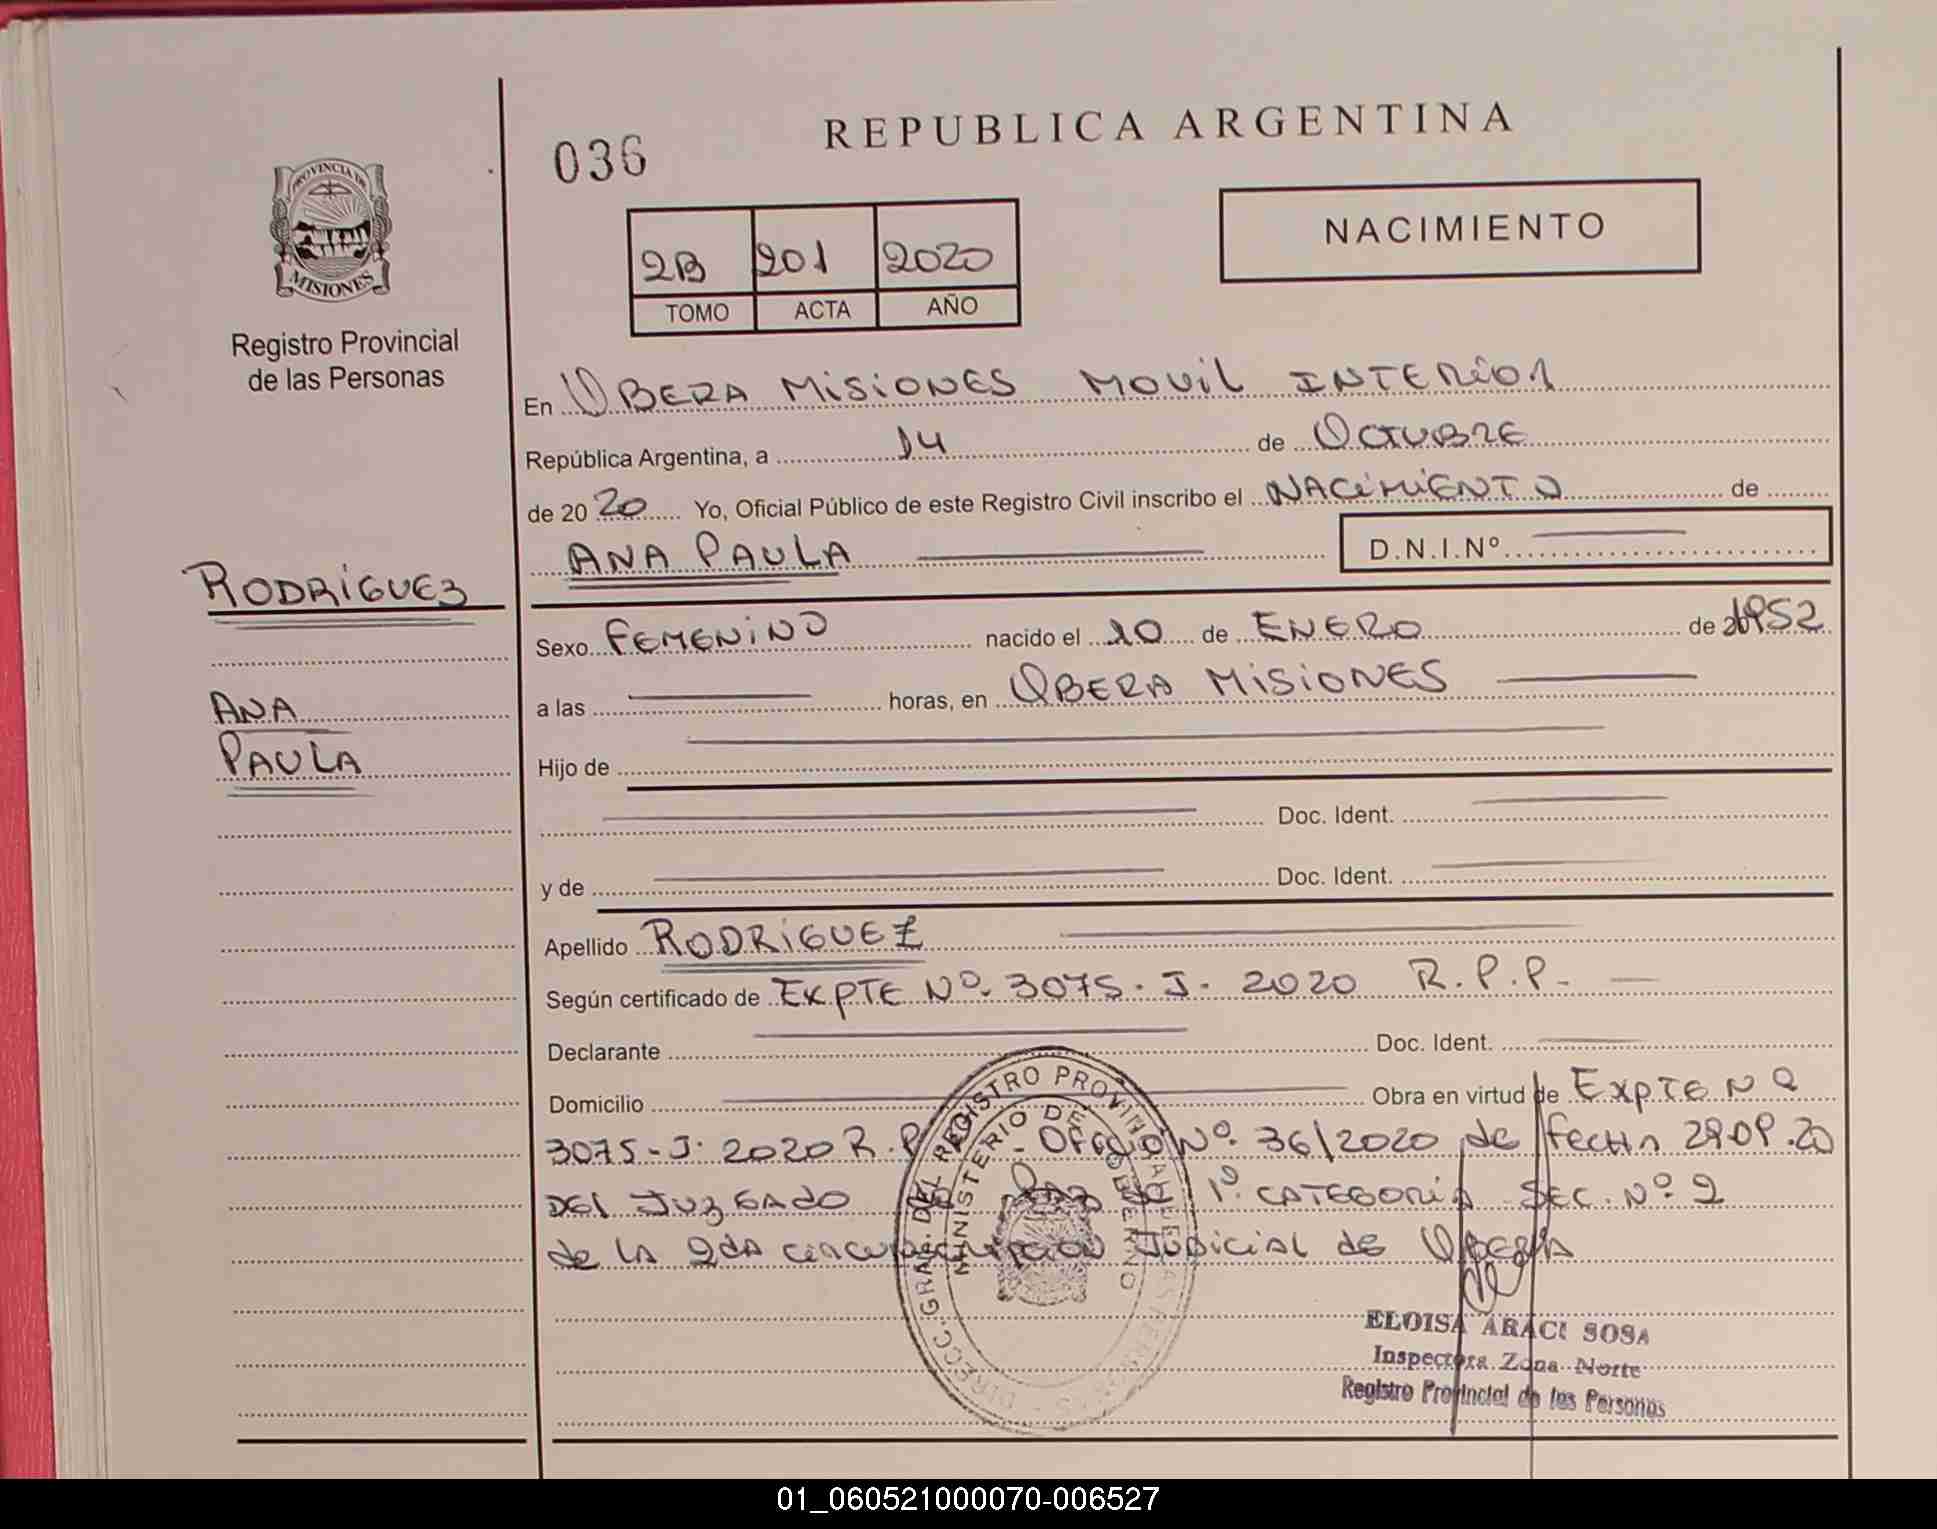 REPUBLICA ARGENTINA
036
PROVINCIA DE
MISIONES
Registro Provincial
de las Personas
2B 201 2020
TOMO ACTA AÑO
NACIMIENTO
En OBERA MISIONES MOVIL INTERIOR
República Argentina, a 14 de OCTUBRE
de 20 20 Yo, Oficial Público de este Registro Civil inscribo el NACIMIENTO de
ANA PAULA D.N.I.Nº
RODRIGUEZ
Sexo FEMENINO nacido el 10 de ENERO de 1952
ANA
PAULA
a las horas, en OBERA MISIONES
Hijo de
Doc. Ident.
y de Doc. Ident.
Apellido RODRIGUEZ
Según certificado de EXPTE Nº. 3075. J. 2020 R.P.P.
Declarante Doc. Ident.
Domicilio Obra en virtud de EXPTE Nº
3075-J. 2020 R.P. OFICIO Nº. 36/2020 de fecha 29.09.20
DEL JUZGADO DE PAZ DE 1º. CATEGORIA SEC. Nº. 2
de LA 2da circunscripcion JUDICIAL de OBERA
DIRECC. GRAL. DEL REGISTRO PROVINCIAL DE LAS PERSONAS
MINISTERIO DE GOBIERNO
ELOISA ARACI SOSA
Inspectora Zona Norte
Registro Provincial de las Personas
01_060521000070-006527